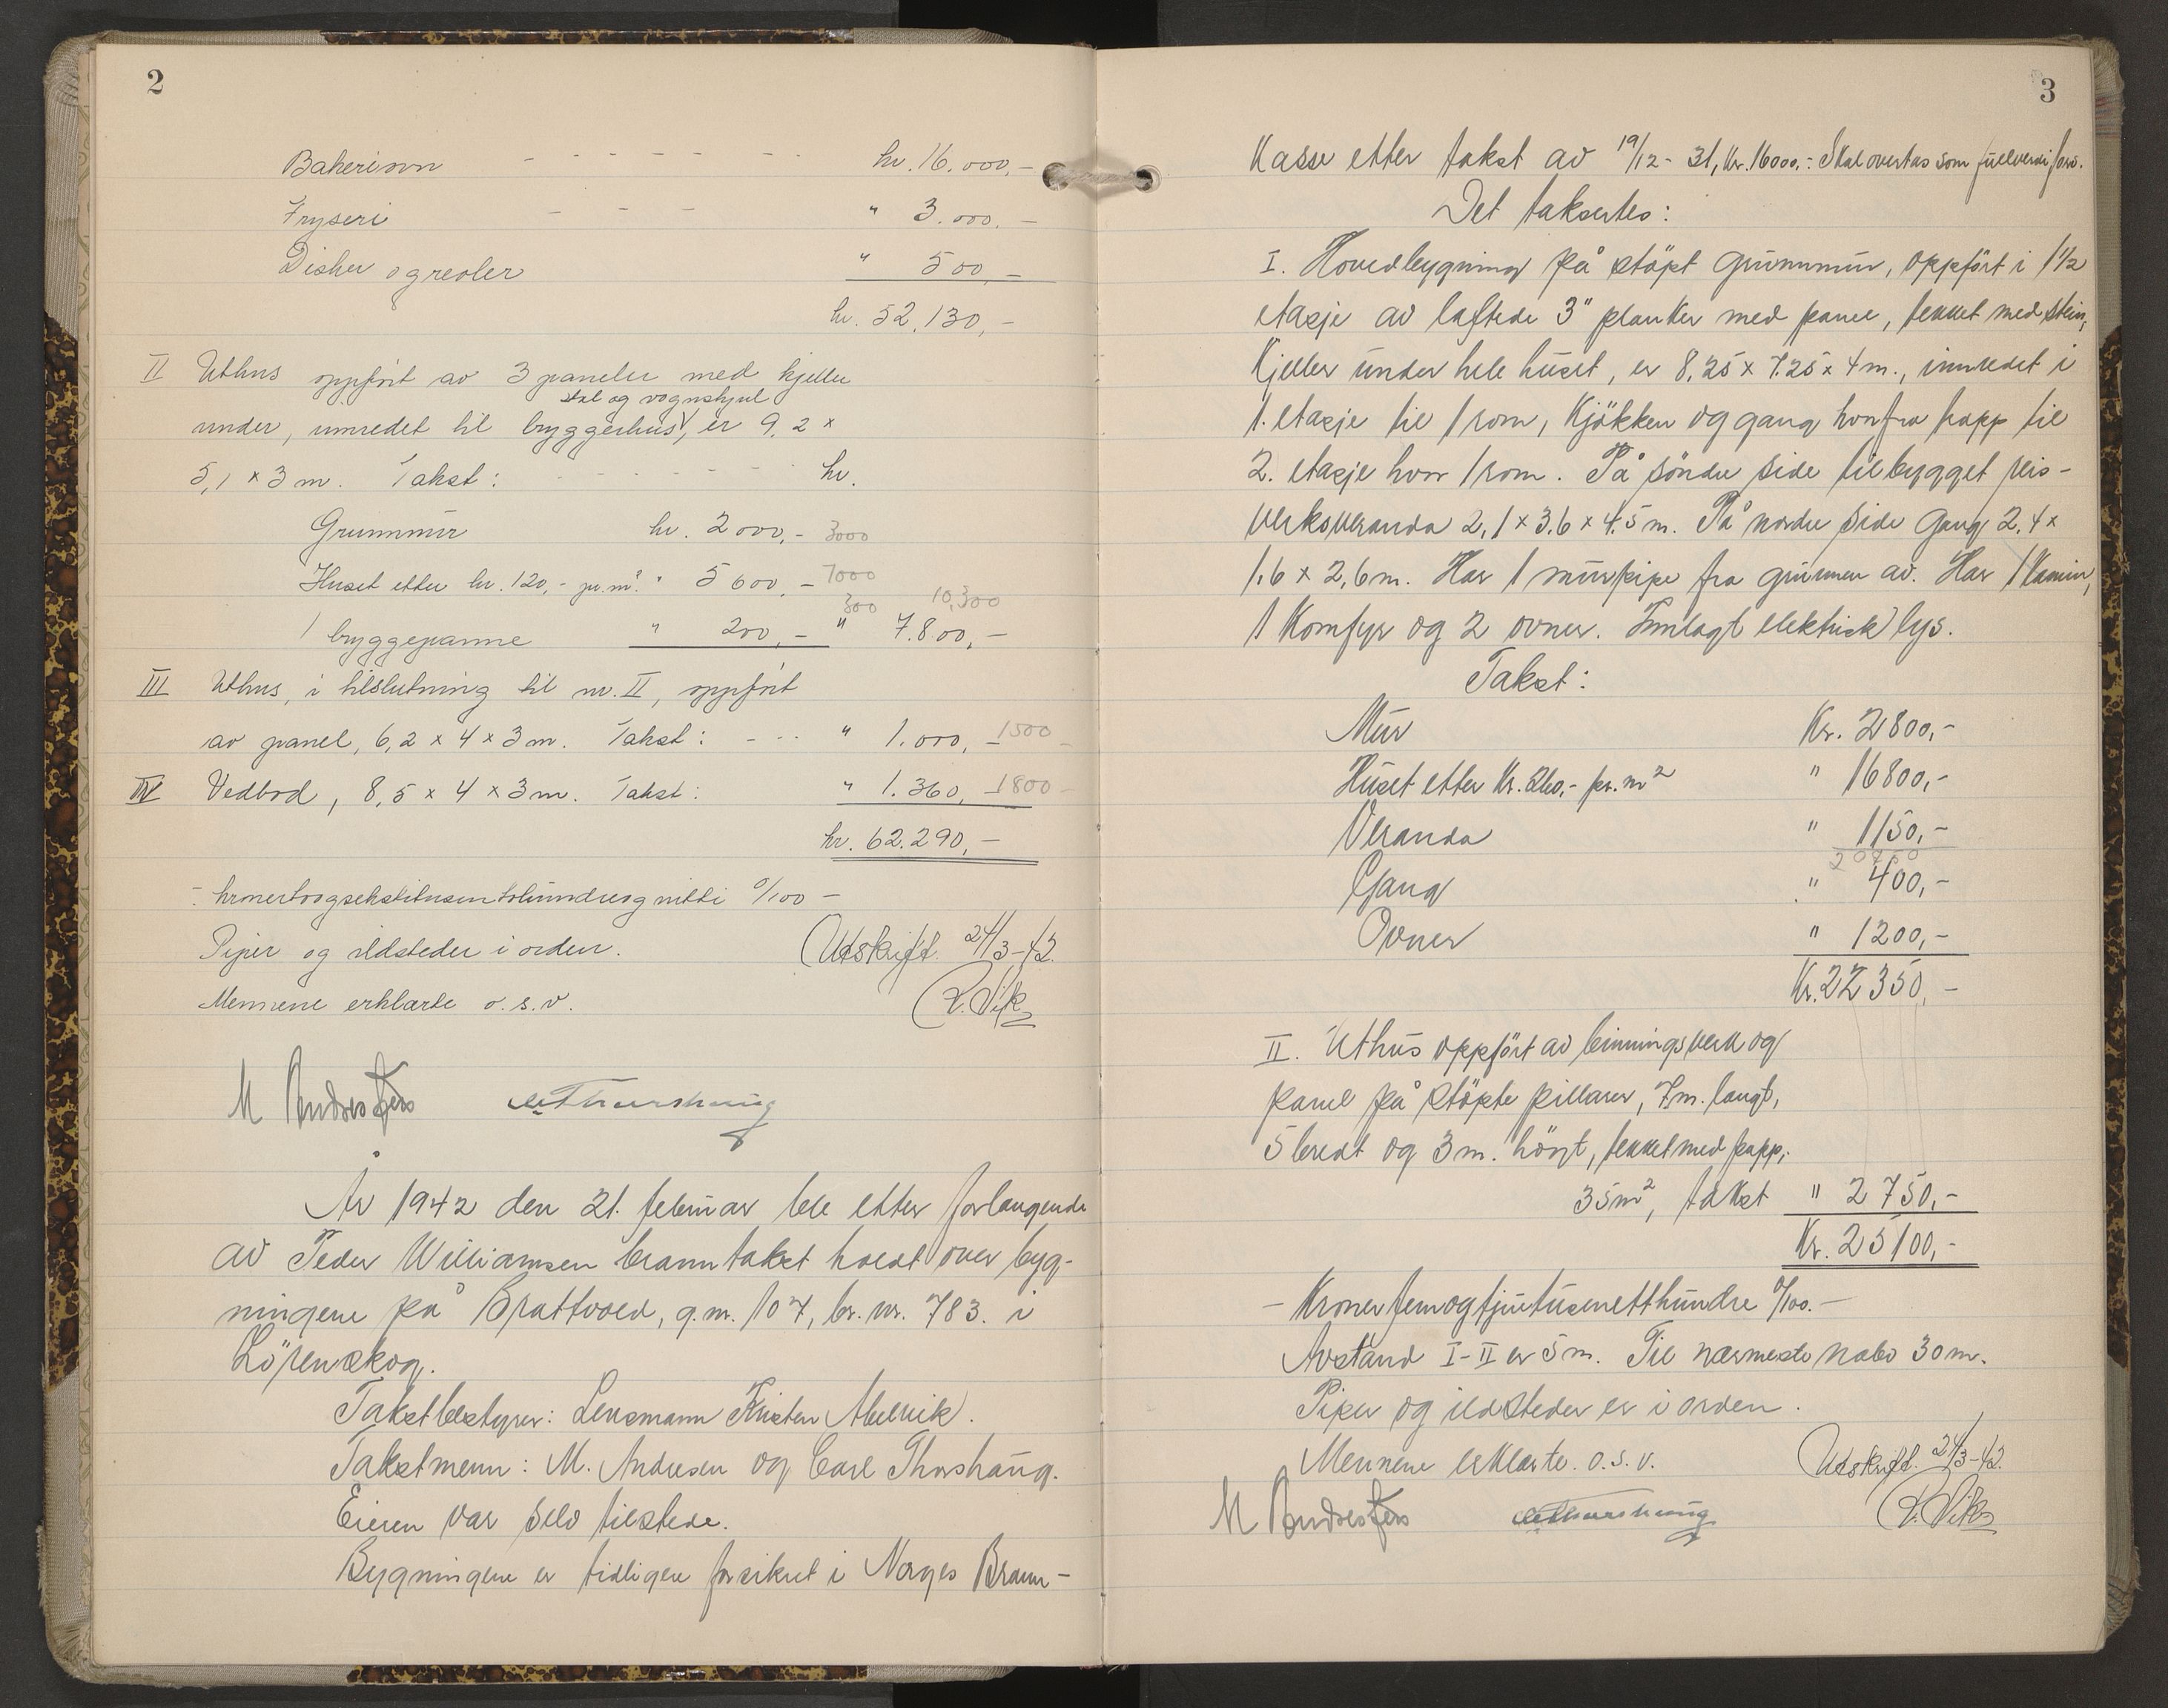 2
Bakeriovn - - - - - - - kr. 16.000,-
Fryseri - - - " 3.000,-
Disker og reoler " 500,-
kr. 52,130,-
II Uthus oppført av 3 paneler med kjeller
stal og vognskjul
under, innredet til bryggerhus, er 9,2 ×
5,1 × 3 m. Takst: - - - - - kr.
Grunnmür kr. 2000,- 3000
Huset etter kr. 120,- pr. m². " 5600,- 7000
300 10,300
1 bryggepanne " 200,- " 7.800,-
III Uthus, i tilslutning til nr. II, oppført
av panel, 6,2 × 4 × 3 m. Takst: - - - " 1.000,- 1500 -
IV Vedbod, 8,5 × 4 × 3 m. Takst: " 1.360,- 1800 -
kr. 62.290,-
- kronertoogsekstitusentohundreognitti 0/100 -
Piper og ildsteder i orden. Utskrift 24/3-42.
Mennene erklærte o. s. v. K. Vik
M Andresen C. Thorshaug
År 1942 den 21. februar ble etter forlangende
av Peder Williamsen branntakst holdt over byg-
ningene på Brattvold, g.nr. 107, br. nr. 783. i
Lörenskog.
Takstbestyrer: Lensmann Kristen Abelvik.
Takstmenn: M. Andresen og Carl Thorshaüg.
Eieren var selv tilstede.
Bygningene er tidligere forsikret i Norges Brann-
3
Kasse etter takst av 19/12-31, Kr. 16000,- Skal overtas som füllverdifors.
Det taksertes:
I. Hovedbygning på stöpt grünnmür, oppfört i 1 1/2
etasje av laftede 3" planker med panel, tekket med stein,
Kjeller ünder hele hüset, er 8,25 × 7,25 × 4 m., innredet i
1. etasje til 1 rom, Kjökken og gang hvorfra trapp til
2. etasje hvor 1 rom. På söndre side tilbygget reis-
verksveranda 2,1 × 3,6 × 4,5 m. På nordre side Gang 2,4 ×
1,6 × 2,6 m. Har 1 mürpipe fra grünnen av. Har 1 Kamin,
1 Komfyr og 2 ovner. Innlagt elektrisk lys.
Takst:
Mür Kr. 2800,-
Hüset etter Kr. 280,- pr. m² " 16800,-
Veranda " 1150,-
20750
Gang " 400,-
Ovner " 1200,-
Kr. 22350,-
II. Uthüs oppfört av binningsverk og
panel på stöpte pillarer, 7 m. langt,
5 bredt og 3 m. höyt, tekket med papp,
35 m², takst " 2750,-
Kr. 25100,-
- Kroner femogtjuetüsenetthündre 0/100.-
Avstand I-II er 5 m. Til nærmeste nabo 30 m.
Piper og ildsteder er i orden.
Mennene erklærte. o. s. v. Utskrift 24/3-42.
M Andresen C. Thorshaug K. Vik